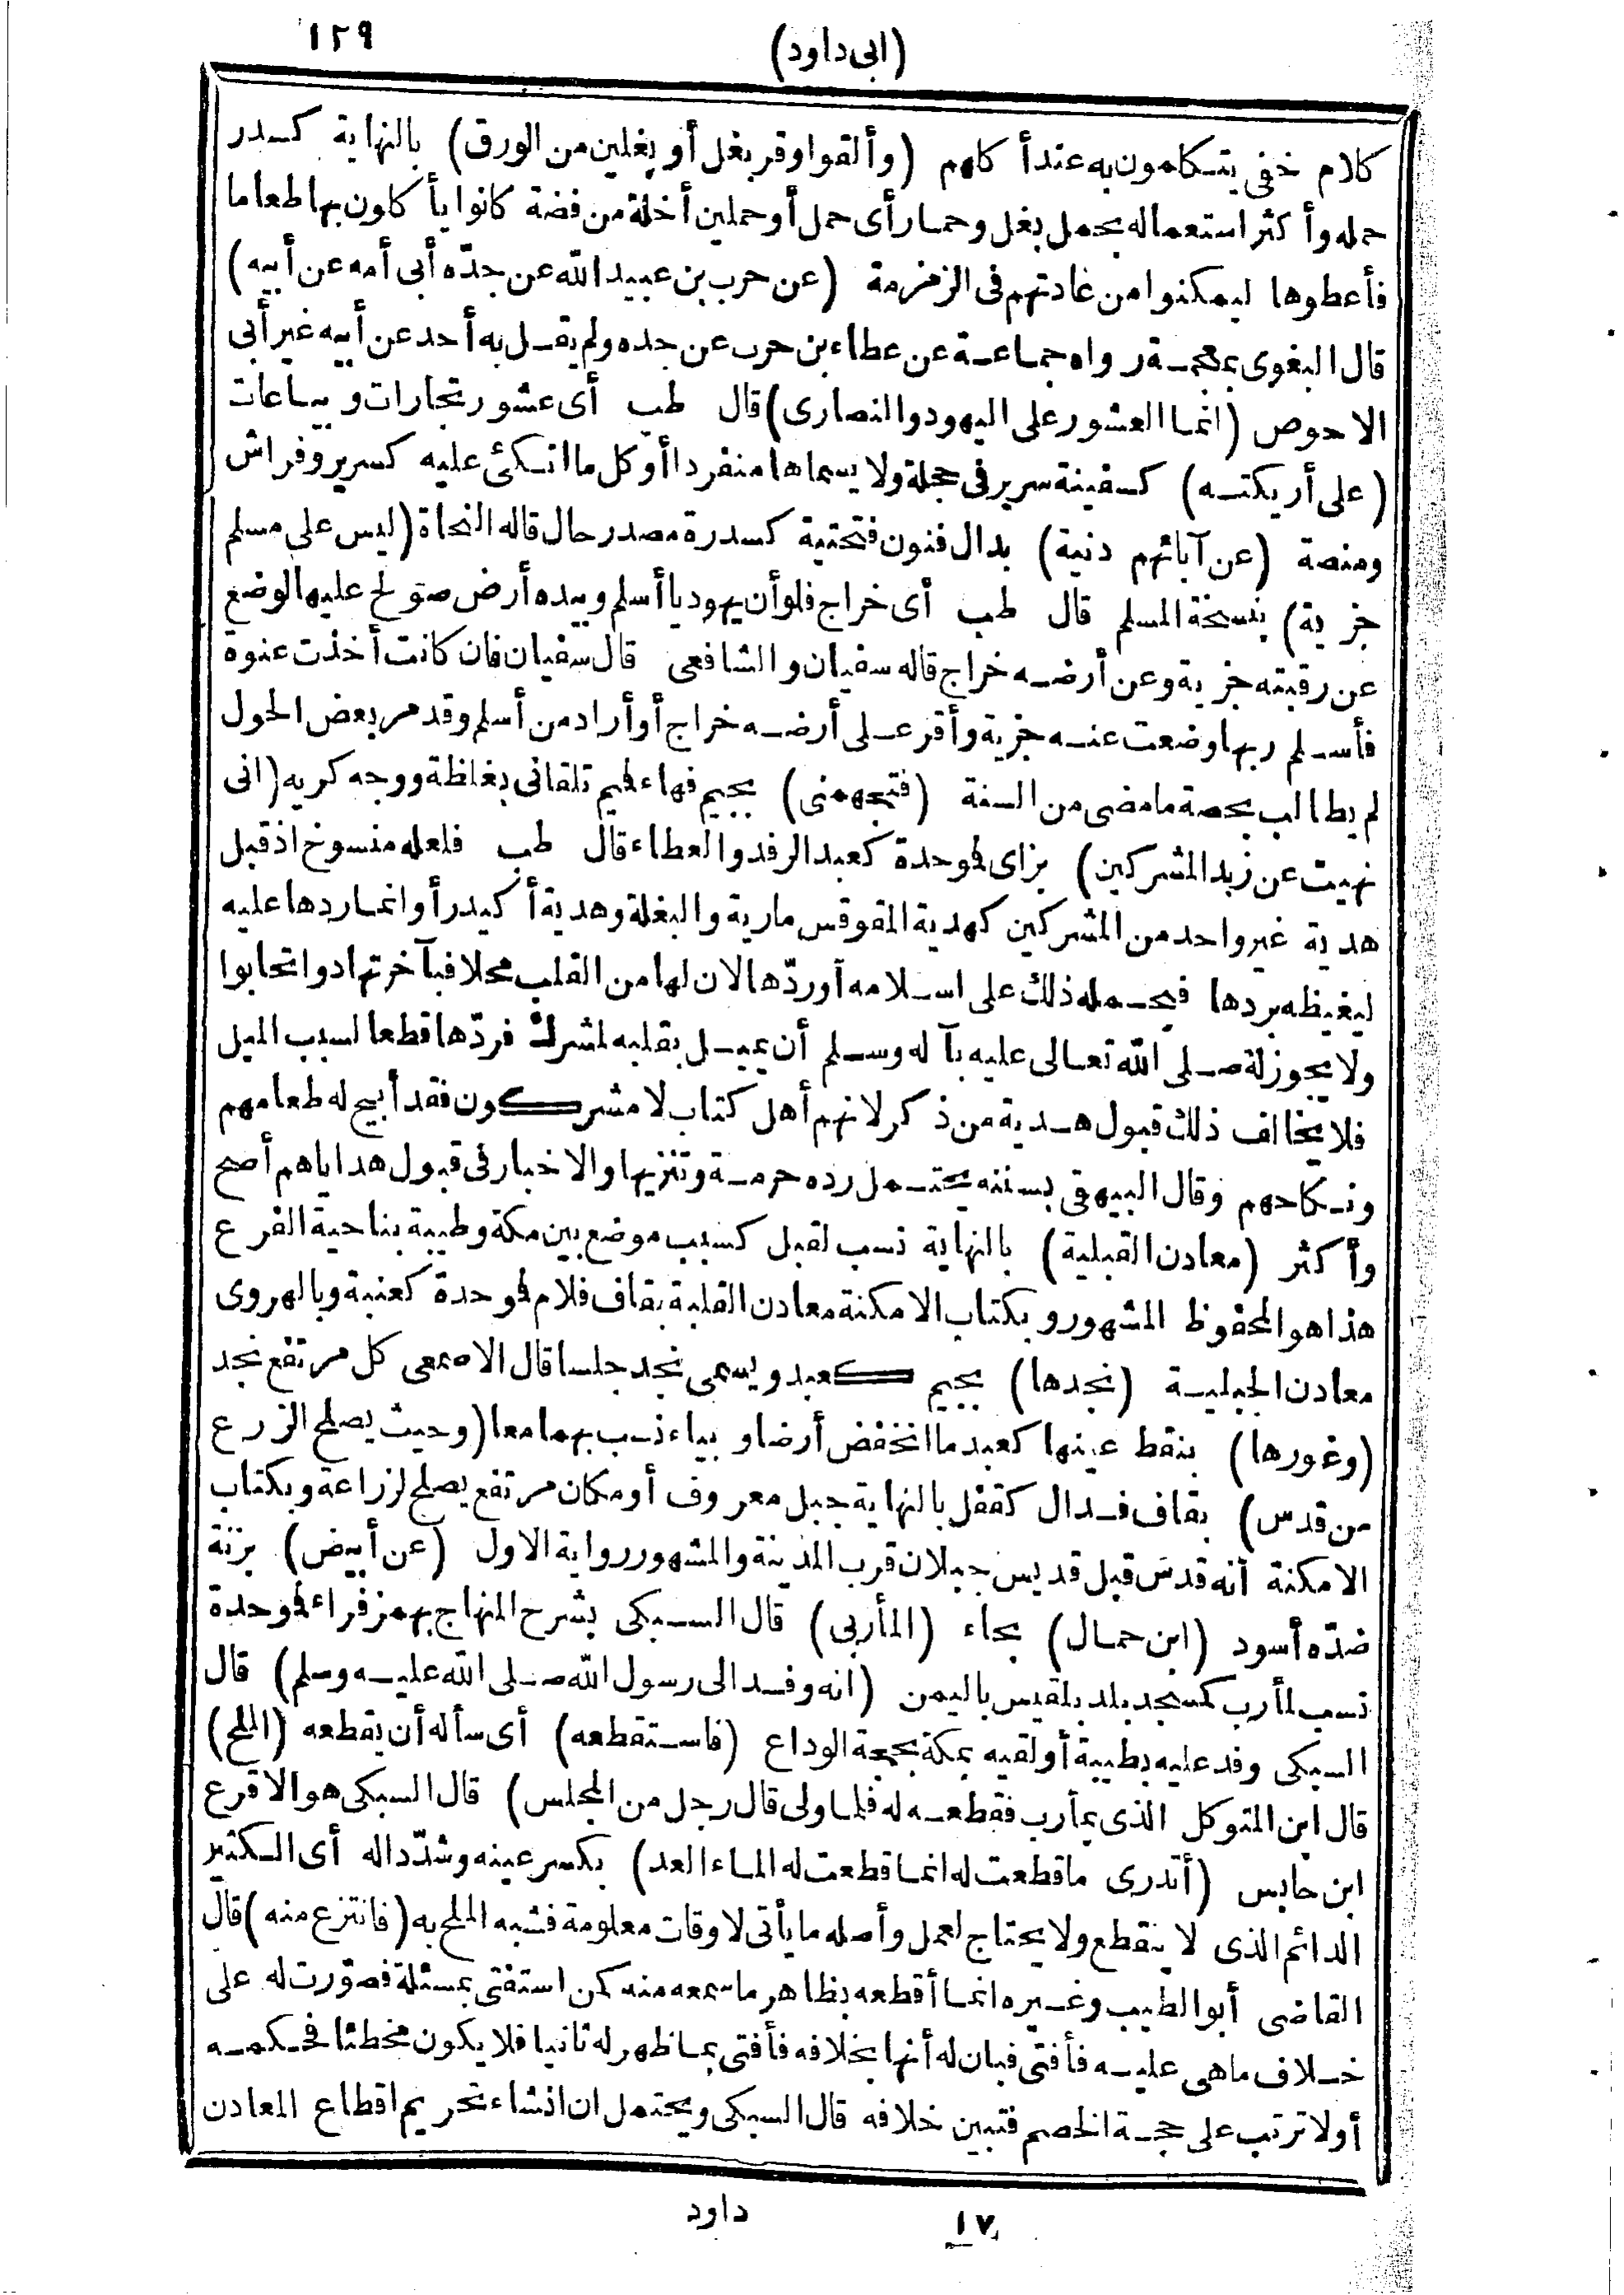 ١٢٩
(ابى داود)
كلام خفى يتكلمون به عند أكلهم (وألقوا وقر بغل أو بغلين من الورق) بالنهاية كسدر
حمله وأكثر استعماله بحمل بغل وحمار أى حمل أو حملين أخلة من فضة كانوا يأكلون بها طعاما
فأعطوها ليمكنوا من عادتهم فى الزمزمة (عن حرب بن عبيد الله عن جدّه أبى أمه عن أبيه)
قال البغوى بمعجمه رواه جماعة عن عطاء بن حرب عن جده ولم يقل به أحد عن أبيه غير أبى
الاحوص (انما العشور على اليهود والنصارى) قال طب أى عشور تجارات وبياعات
(على أريكته) كسفينة سرير فى حجلة ولا يسماها منفردا أو كل ما اتكئ عليه كسرير وفراش
ومنصة (عن آبائهم دنية) بدال فنون فتحتية كسدرة مصدر حال قاله النحاة (ليس على مسلم
جزية) بنسخة المسلم قال طب أى خراج فلو أن يهوديا أسلم وبيده أرض صولح عليها لوضع
عن رقبته جزية وعن أرضه خراج قاله سفيان والشافعى قال سفيان فان كانت أخذت عنوة
فأسلم ربها وضعت عنه جزية وأقر على أرضه خراج أو أراد من أسلم وقد مر بعض الحول
لم يطالب بحصة ما مضى من السنة (فتجهمنى) بجيم فهاء فميم تلقانى بغلظة ووجه كريه (انى
نهيت عن زبد المشركين) بزاى فموحدة كعبد الرفد والعطاء قال طب فلعله منسوخ اذ قبل
هدية غير واحد من المشركين كهدية المقوقس مارية والبغلة وهدية أكيدر أو انما ردها عليه
ليغيظه بردها فيحمله ذلك على اسلامه أو ردّها لان لها من القلب محلا فبآخر تهادوا تحابوا
ولا يجوز له صلى الله تعالى عليه بآ له وسلم أن يميل بقلبه لمشرك فردّها قطعا لسبب الميل
فلا يخالف ذلك قبول هدية من ذكر لانهم أهل كتاب لا مشركون فقد أبيح له طعامهم
ونكاحهم وقال البيهقى بسننه يحتمل رده حرمة وتنزيها والاخبار فى قبول هداياهم أصح
وأكثر (معادن القبلية) بالنهاية نسب لقبل كسبب موضع بين مكة وطيبة بناحية الفرع
هذا هو المحفوظ المشهور وبكتاب الامكنة معادن القلبة بقاف فلام فموحدة كعنبة وبالهروى
معادن الجبلية (نجدها) بجيم كعبد ويسمى نجد جلسا قال الاصمعى كل مرتفع نجد
(وغورها) بنقط عينها كعبد ما انخفض أرضا وبياء نسب بهما معا (وحيث يصلح الزرع
من قدس) بقاف فدال كقفل بالنهاية جبل معروف أو مكان مرتفع يصلح لزراعة وبكتاب
الامكنة أنه قدس قبل قديس جبلان قرب المدينة والمشهور رواية الاول (عن أبيض) بزنة
ضدّه أسود (ابن حمال) بحاء (المأربى) قال السبكى بشرح المنهاج بهمز فراء فموحدة
نسب لمأرب كمسجد بلد بلقيس باليمن (انه وفد الى رسول الله صلى الله عليه وسلم) قال
السبكى وفد عليه بطيبة أو لقيه بمكة بحجة الوداع (فاستقطعه) أى سأله أن يقطعه (الملح)
قال ابن المتوكل الذى بمأرب فقطعه له فلما ولى قال رجل من المجلس) قال السبكى هو الاقرع
ابن حابس (أتدرى ما قطعت له انما قطعت له الماء العد) بكسر عينه وشدّ داله أى الكثير
الدائم الذى لا ينقطع ولا يحتاج لعمل وأصله ما يأتى لاوقات معلومة فشبه الملح به (فانتزع منه) قال
القاضى أبو الطيب وغيره انما أقطعه بظاهر ما سمعه منه كمن استفتى بمسئلة فصوّرت له على
خلاف ما هى عليه فأفتى فبان له أنها بخلافه فأفتى بما ظهر له ثانيا فلا يكون مخطئا فحكمه
أولا ترتب على حجة الخصم فتبين خلافه قال السبكى ويحتمل ان انشاء تحريم اقطاع المعادن
١٧ داود